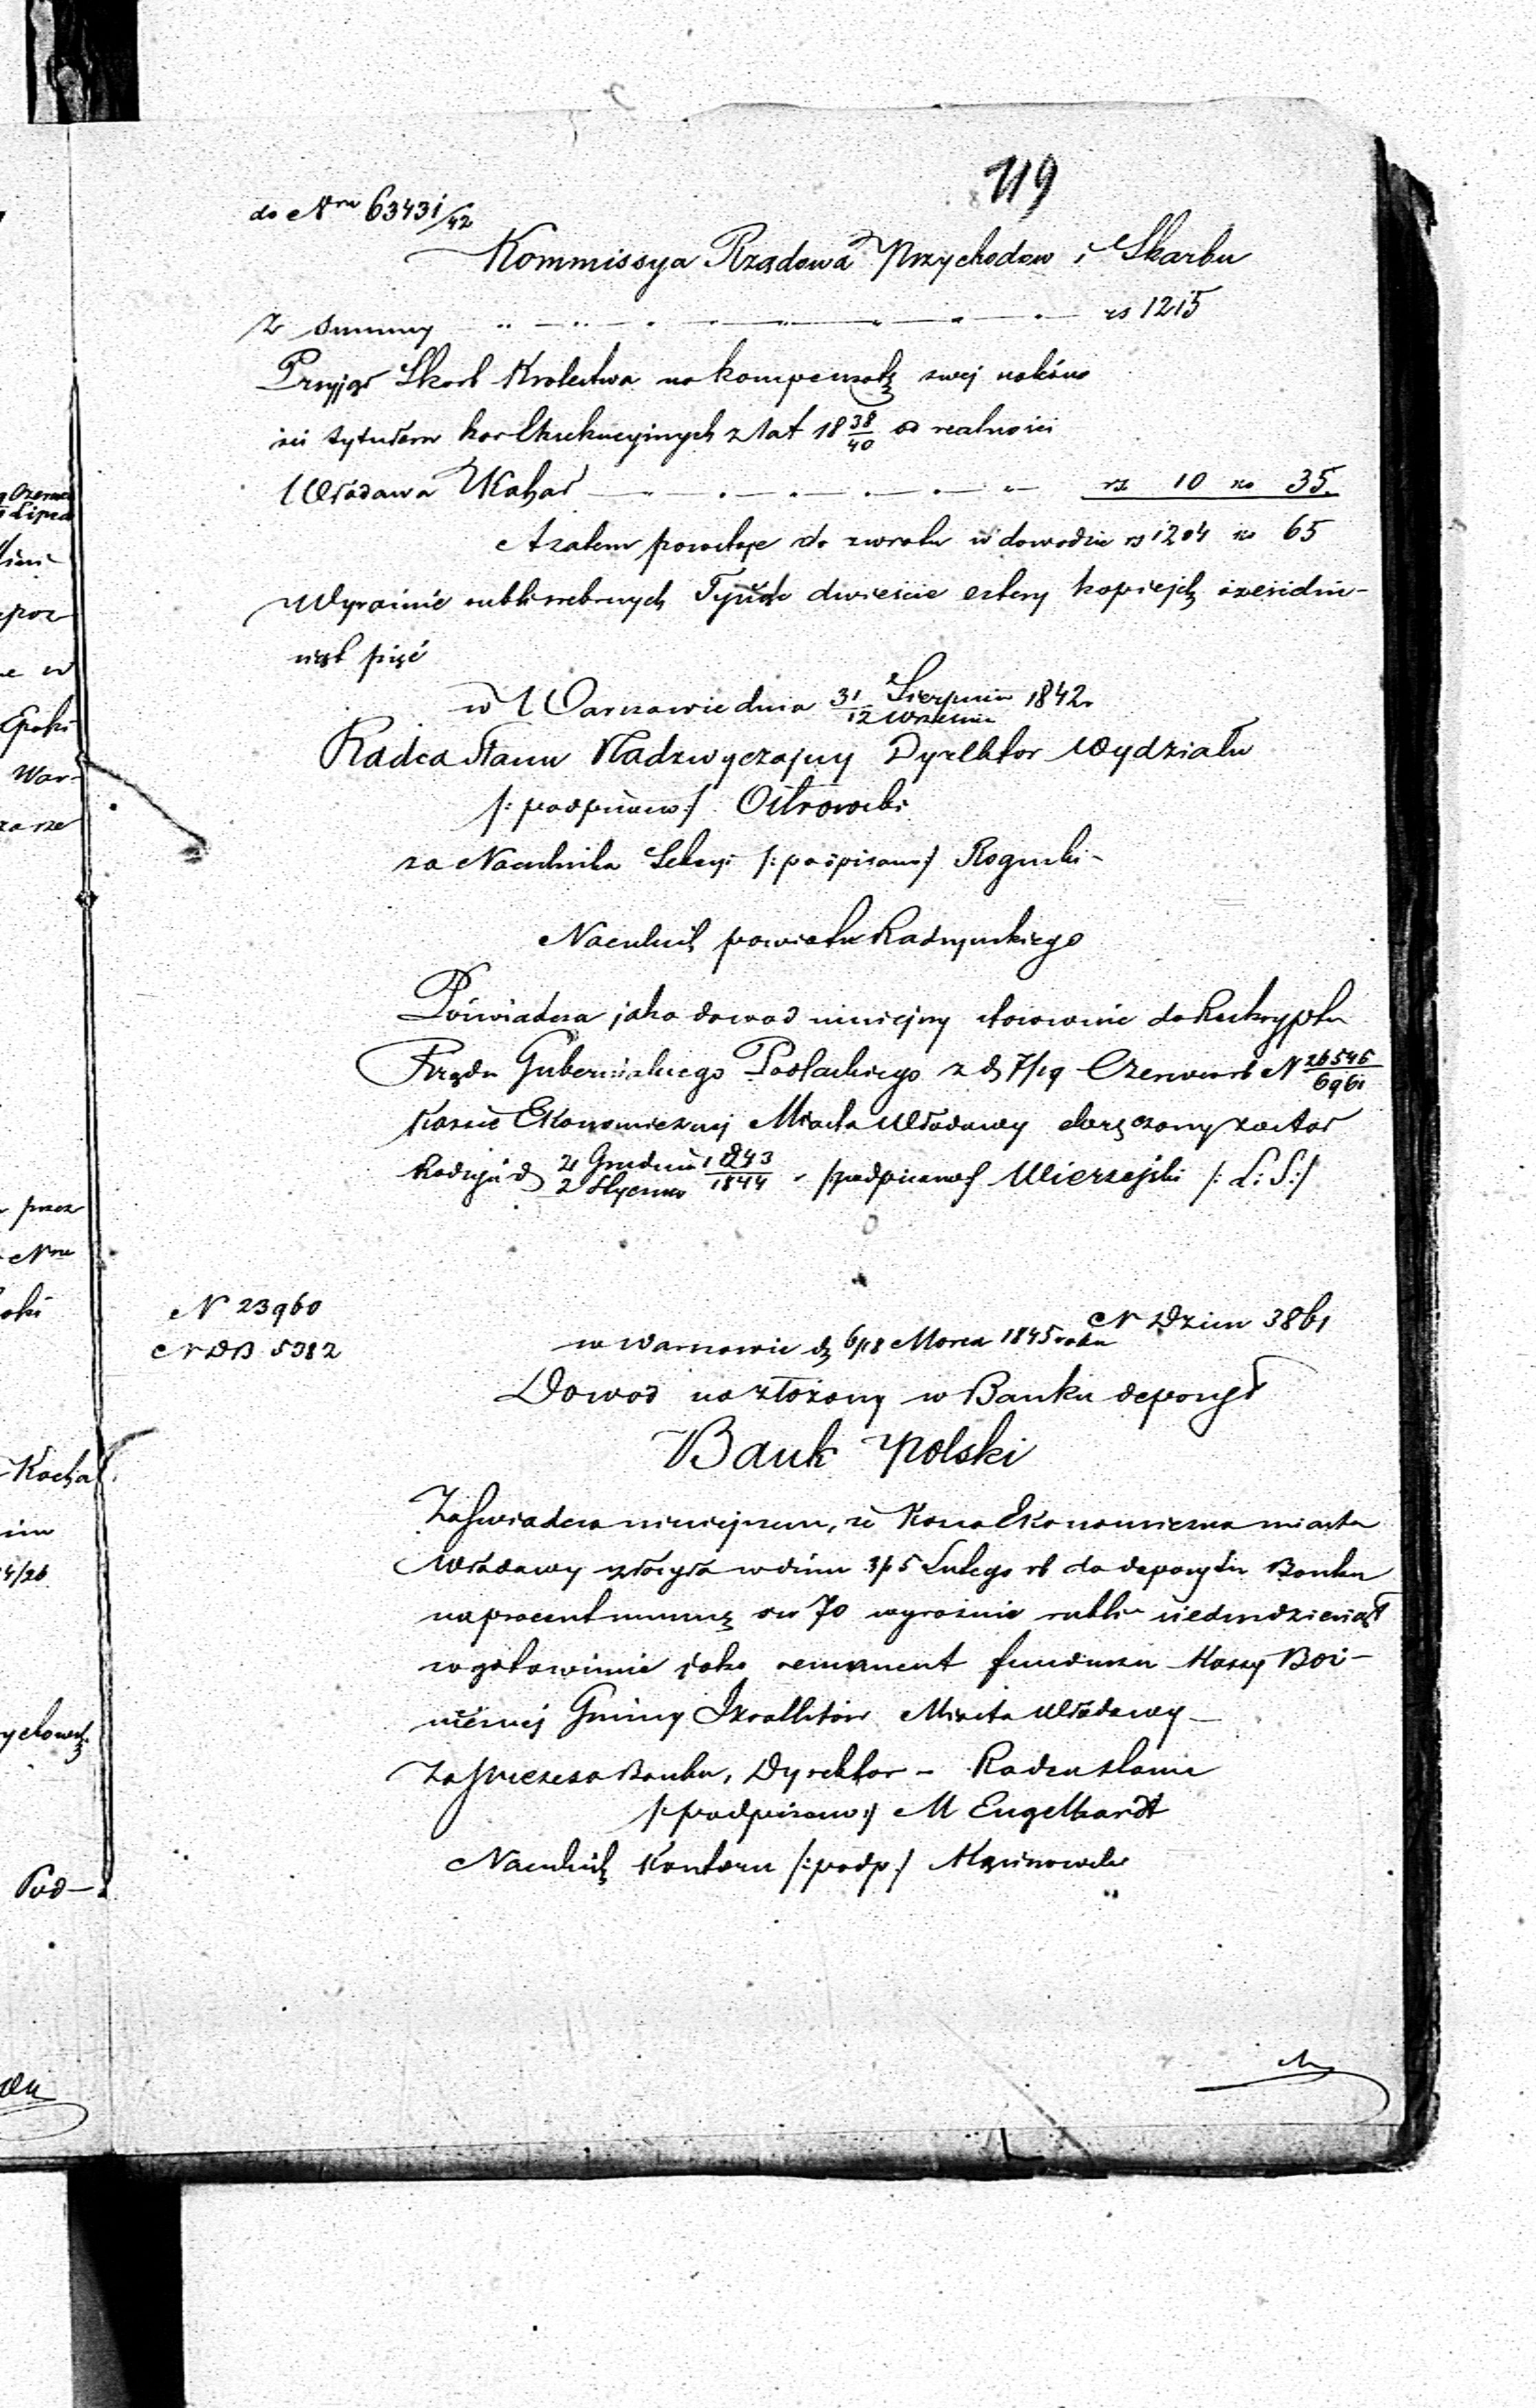 119
do Nru 63431/42
Kommissya Rządowa Przychodow i Skarbu
Z Summy rs 1215
Przyjął Skarb Krolestwa na kompensatę swej należno
ści tytułem kar Exekucyjnych z lat 18 38/40 od realności
Włodawa Kahał rs 10 ko 35.
A zatem pozostaje do zwrotu w dowodzie rs 1204 ko 65
Wyraźnie rubli srebrnych Tysiąc dwieście cztery kopiejek sześćdzie-
siąt pięć
w Warszawie dnia 31 Sierpnia/12 Września 1842.
Radca Stanu Nadzwyczajny Dyrektor Wydziału
/: podpisano :/ Ostrowski
za Naczelnika Sekcyi /: podpisano :/ Rogucki -
Naczelnik powiatu Radzyńskiego
Poświadcza jako dowod niniejszy stosownie do Reskryptu
Rządu Gubernialnego Podlaskiego z d 7/19 Czerwca rb N 26546/6961
Kassie Ekonomicznej Miasta Włodawy doręczony został
Radzyń d 21 Grudnia 1843/2 Stycznia 1844 - /podpisano/ Mierzejski /: L: S:/
N 23960
N DB 5382
N Dzien 3861
w Warszawie d 6/18 Marca 1845 roku
Dowod na złożony w Banku depozyt
Bank Polski
Zaświadcza niniejszem, że Kassa Ekonomiczna miasta
Włodawy złożyła w dniu 3/15 Lutego rb do depozytu Banku
na procent summę rsr 70 wyraźnie rubli siedmdziesiąt
w gotowiznie jako remanent funduszu Kassy Boż-
niczej Gminy Izraelitów Miasta Włodawy -
Za Prezesa Banku, Dyrektor - Radca Stanu
/: podpisano :/ M Engelhardt
Naczelnik Kontoru /: podp :/